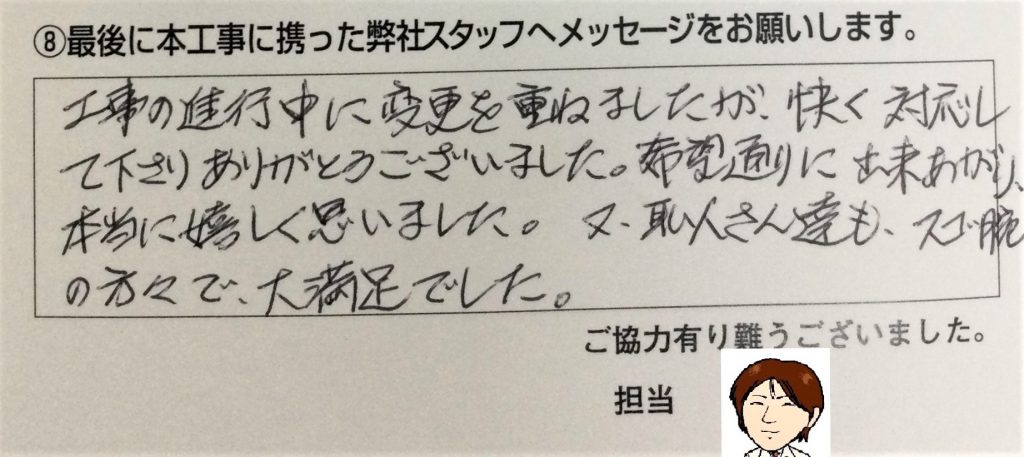 ⑧最後に本工事に携った弊社スタッフへメッセージをお願いします。
工事の進行中に変更を重ねましたが、快く対応し
て下さりありがとうございました。希望通りに出来あがり、
本当に嬉しく思いました。又、恥人さん達も、スゴ腕
の方々で、大満足でした。
ご協力有り難うございました。
担当